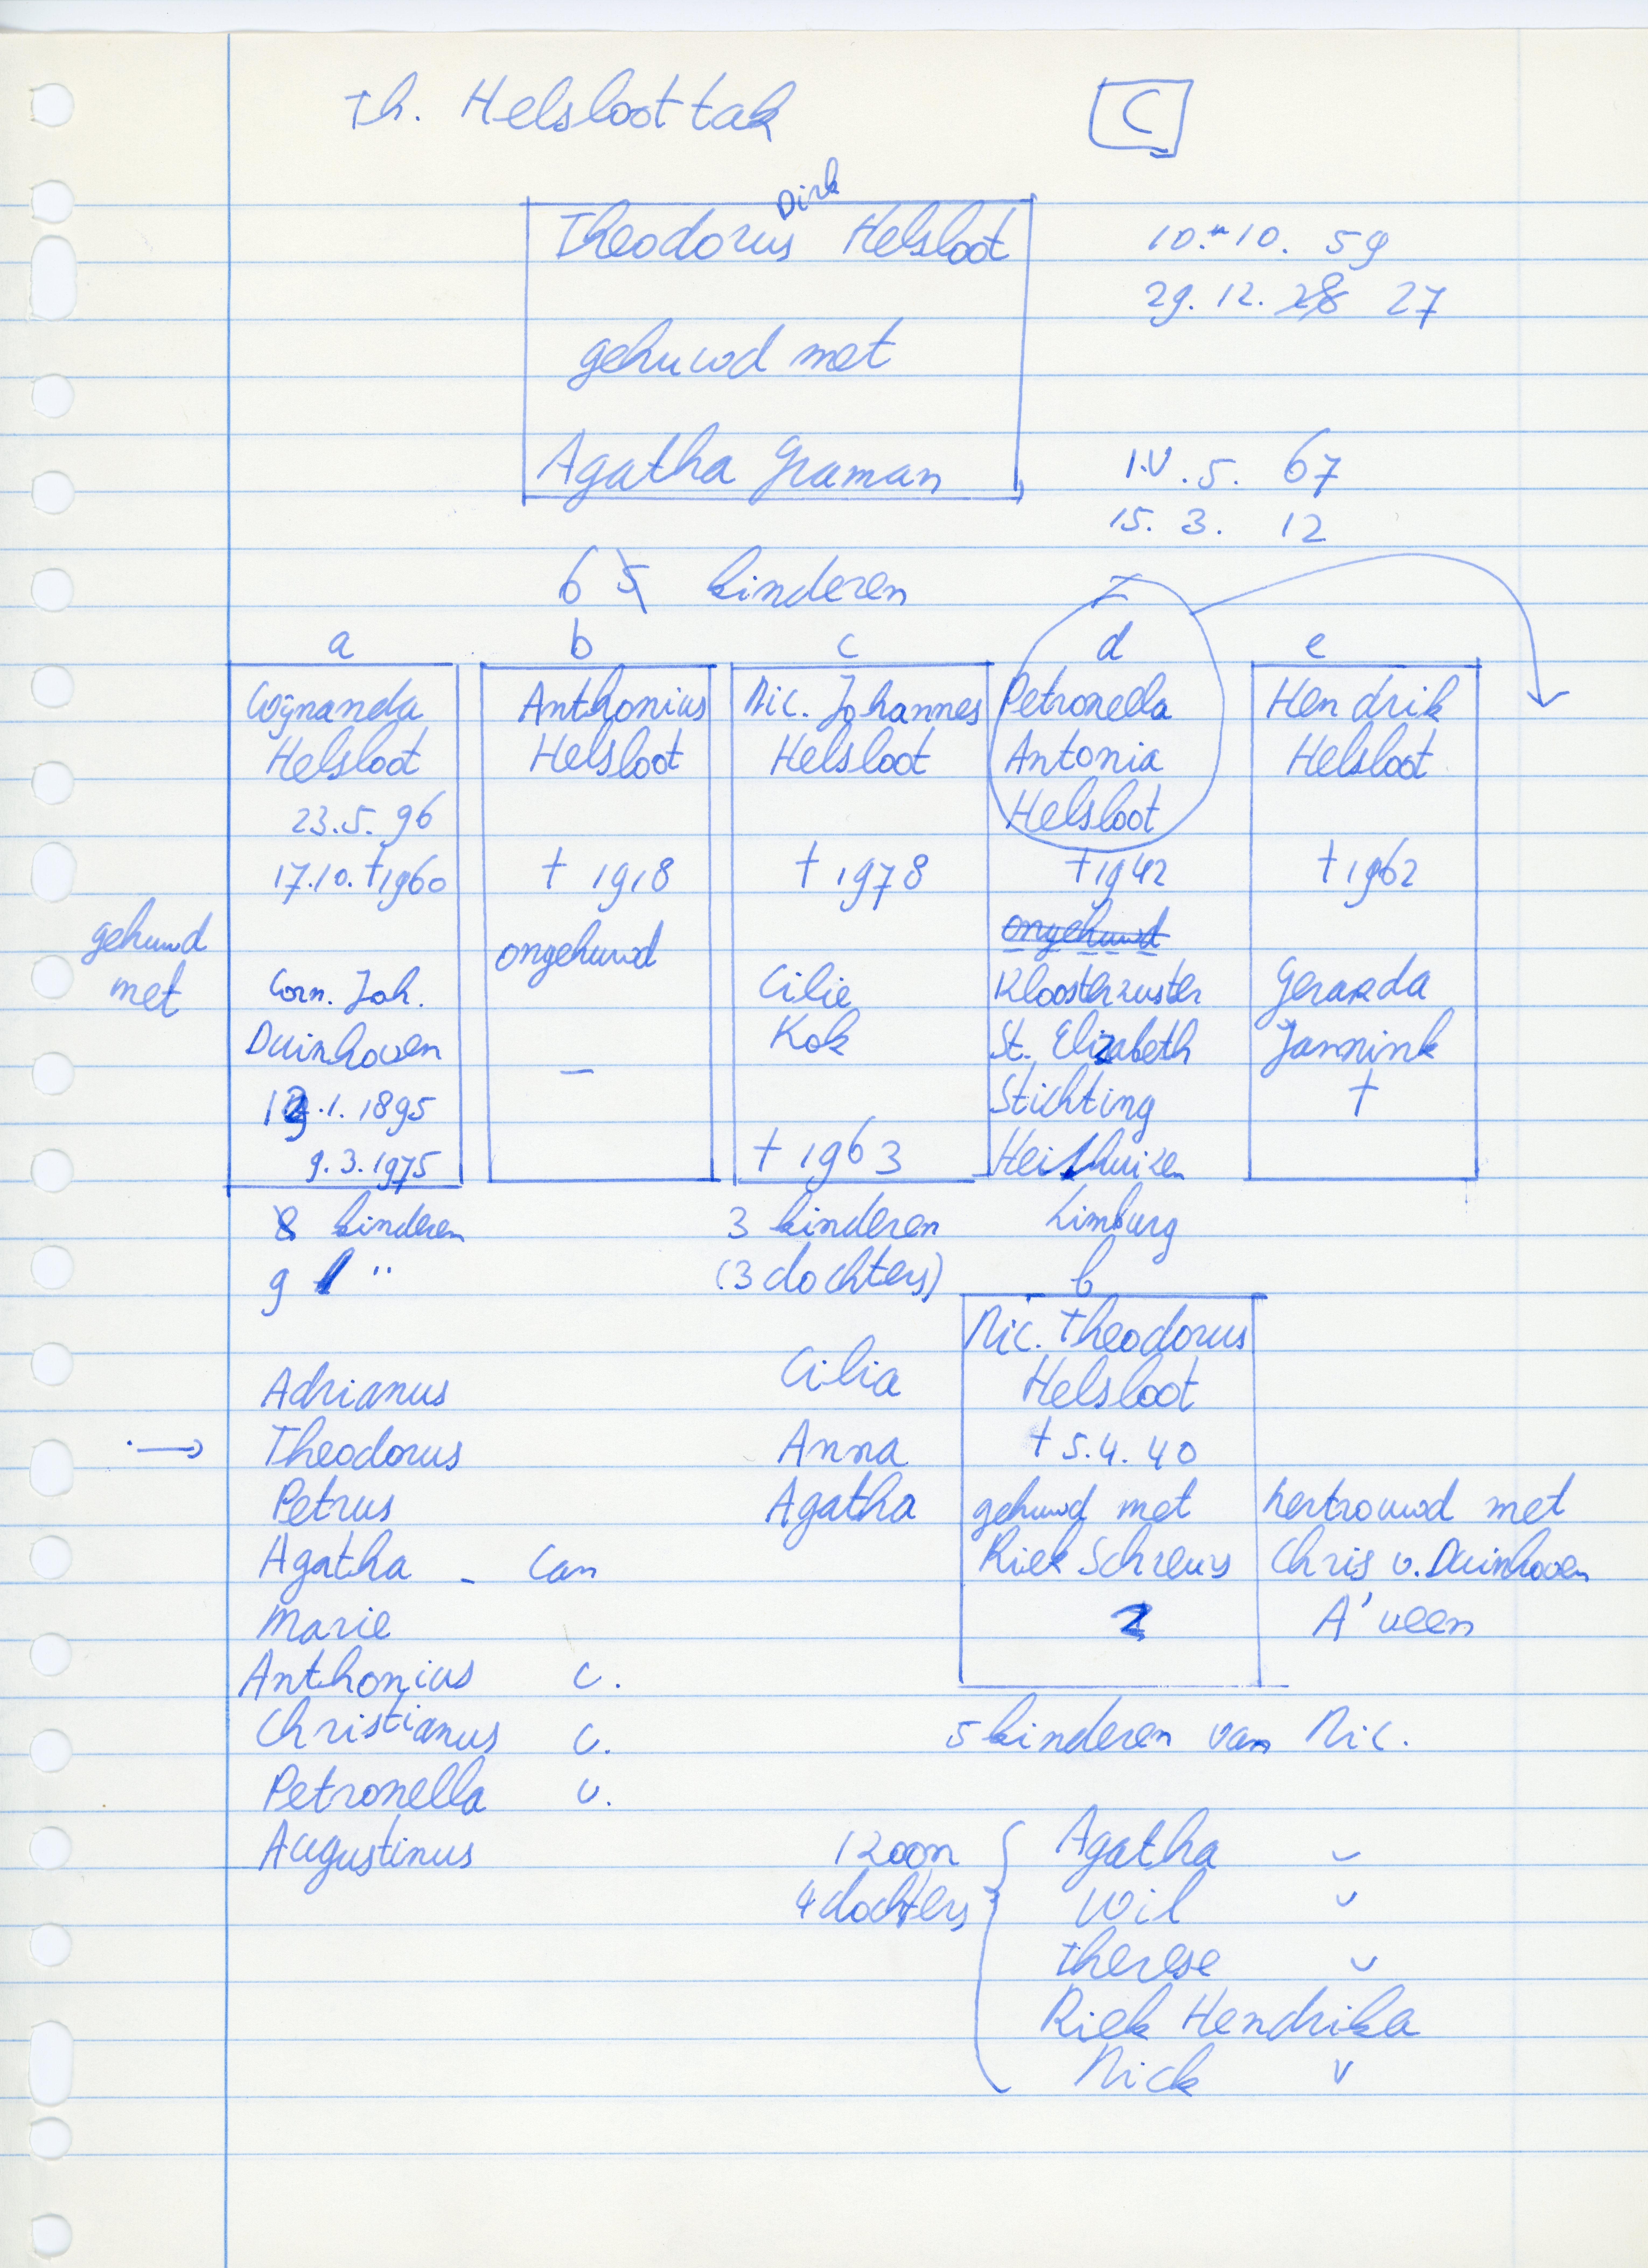 Th. Helsloot tak
C
Dirk
Theodorus Helsloot
10.-10. 59
29. 12. 28 27
gehuwd met
Agatha Graman
1.V.5. 67
15. 3. 12
6 5 kinderen
a b c d e
Wijnanda
Helsloot
23.5. 96
17.10. †1960
gehuwd
met
Corn. Joh.
Duinhoven
.1. 1895
9.3.1975
8 kinderen
9 "
Anthonius
Helsloot
† 1918
ongehuwd
–
Nic. Johannes
Helsloot
† 1978
Cilie
Kok
† 1963
3 kinderen
(3 dochters)
Petronella
Antonia
Helsloot
† 1942
ongehuwd
Kloosterzuster
St. Elizabeth
Stichting
Limburg
Hendrik
Helsloot
† 1962
Gerarda
Jannink
†
Adrianus
→ Theodorus
Petrus
Agatha - Can
Marie
Anthonius c.
Christianus c.
Petronella v.
Augustinus
Cilia
Anna
Agatha
b
Nic. Theodorus
Helsloot
† 5.4.40
gehuwd met
Riek Schreurs
2
hertrouwd met
Chris v. Duinhoven
A'veen
5 kinderen van Nic.
1 zoon
4 dochters
Agatha v
Wil v
Therese v
Riek Hendrika
Nick v